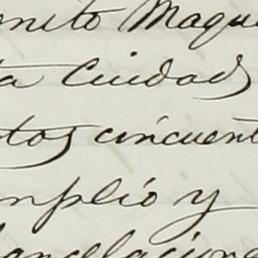 onito Maqu
ta Ciudad
tos cincuent
mplió y
ancelacion